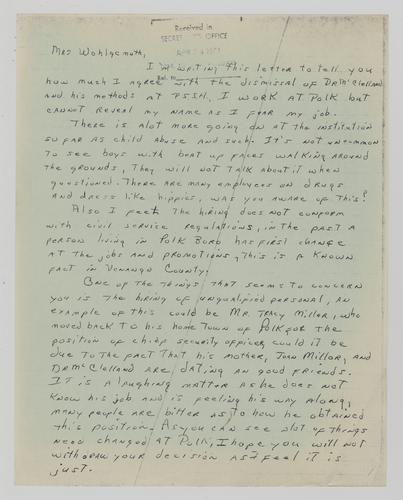 Received in
SECRETARY'S OFFICE
APR 24 1973
Mrs Wohlgemuth,
I am writing this letter to tell you
Ref. to
how much I agree with the dismissal of Dr Mc Clelland
and his methods at PSSH, I work at Polk but
cannot reveal my name as I fear my job.
There is alot more going on at the institution
so far as child abuse and such. It's not uncommon
to see boys with beat up faces walking around
the grounds, They will not talk about it when
questioned. There are many employees on drugs
and dress like hippies, was you aware of this?
Also I feel the hiring does not conform
with civil service regulations, in the past a
person living in Polk Boro has first chance
at the jobs and promotions, This is a known
fact in Venango County.
One of the things that seems to concern
you is the hiring of unqualified personal, an
example of this could be Mr. Tracy Millor, who
moved back to his home town of Polk for the
position of chief security officer, could it be
due to the fact that his mother, Joan Millor, and
Dr Mc Clelland are dating an good friends.
It is a laughing matter as he does not
know his job and is feeling his way along,
many people are bitter as to how he obtained
this position. As you can see alot of things
need changed at Polk, I hope you will not
withdraw your decision as I feel it is
just.